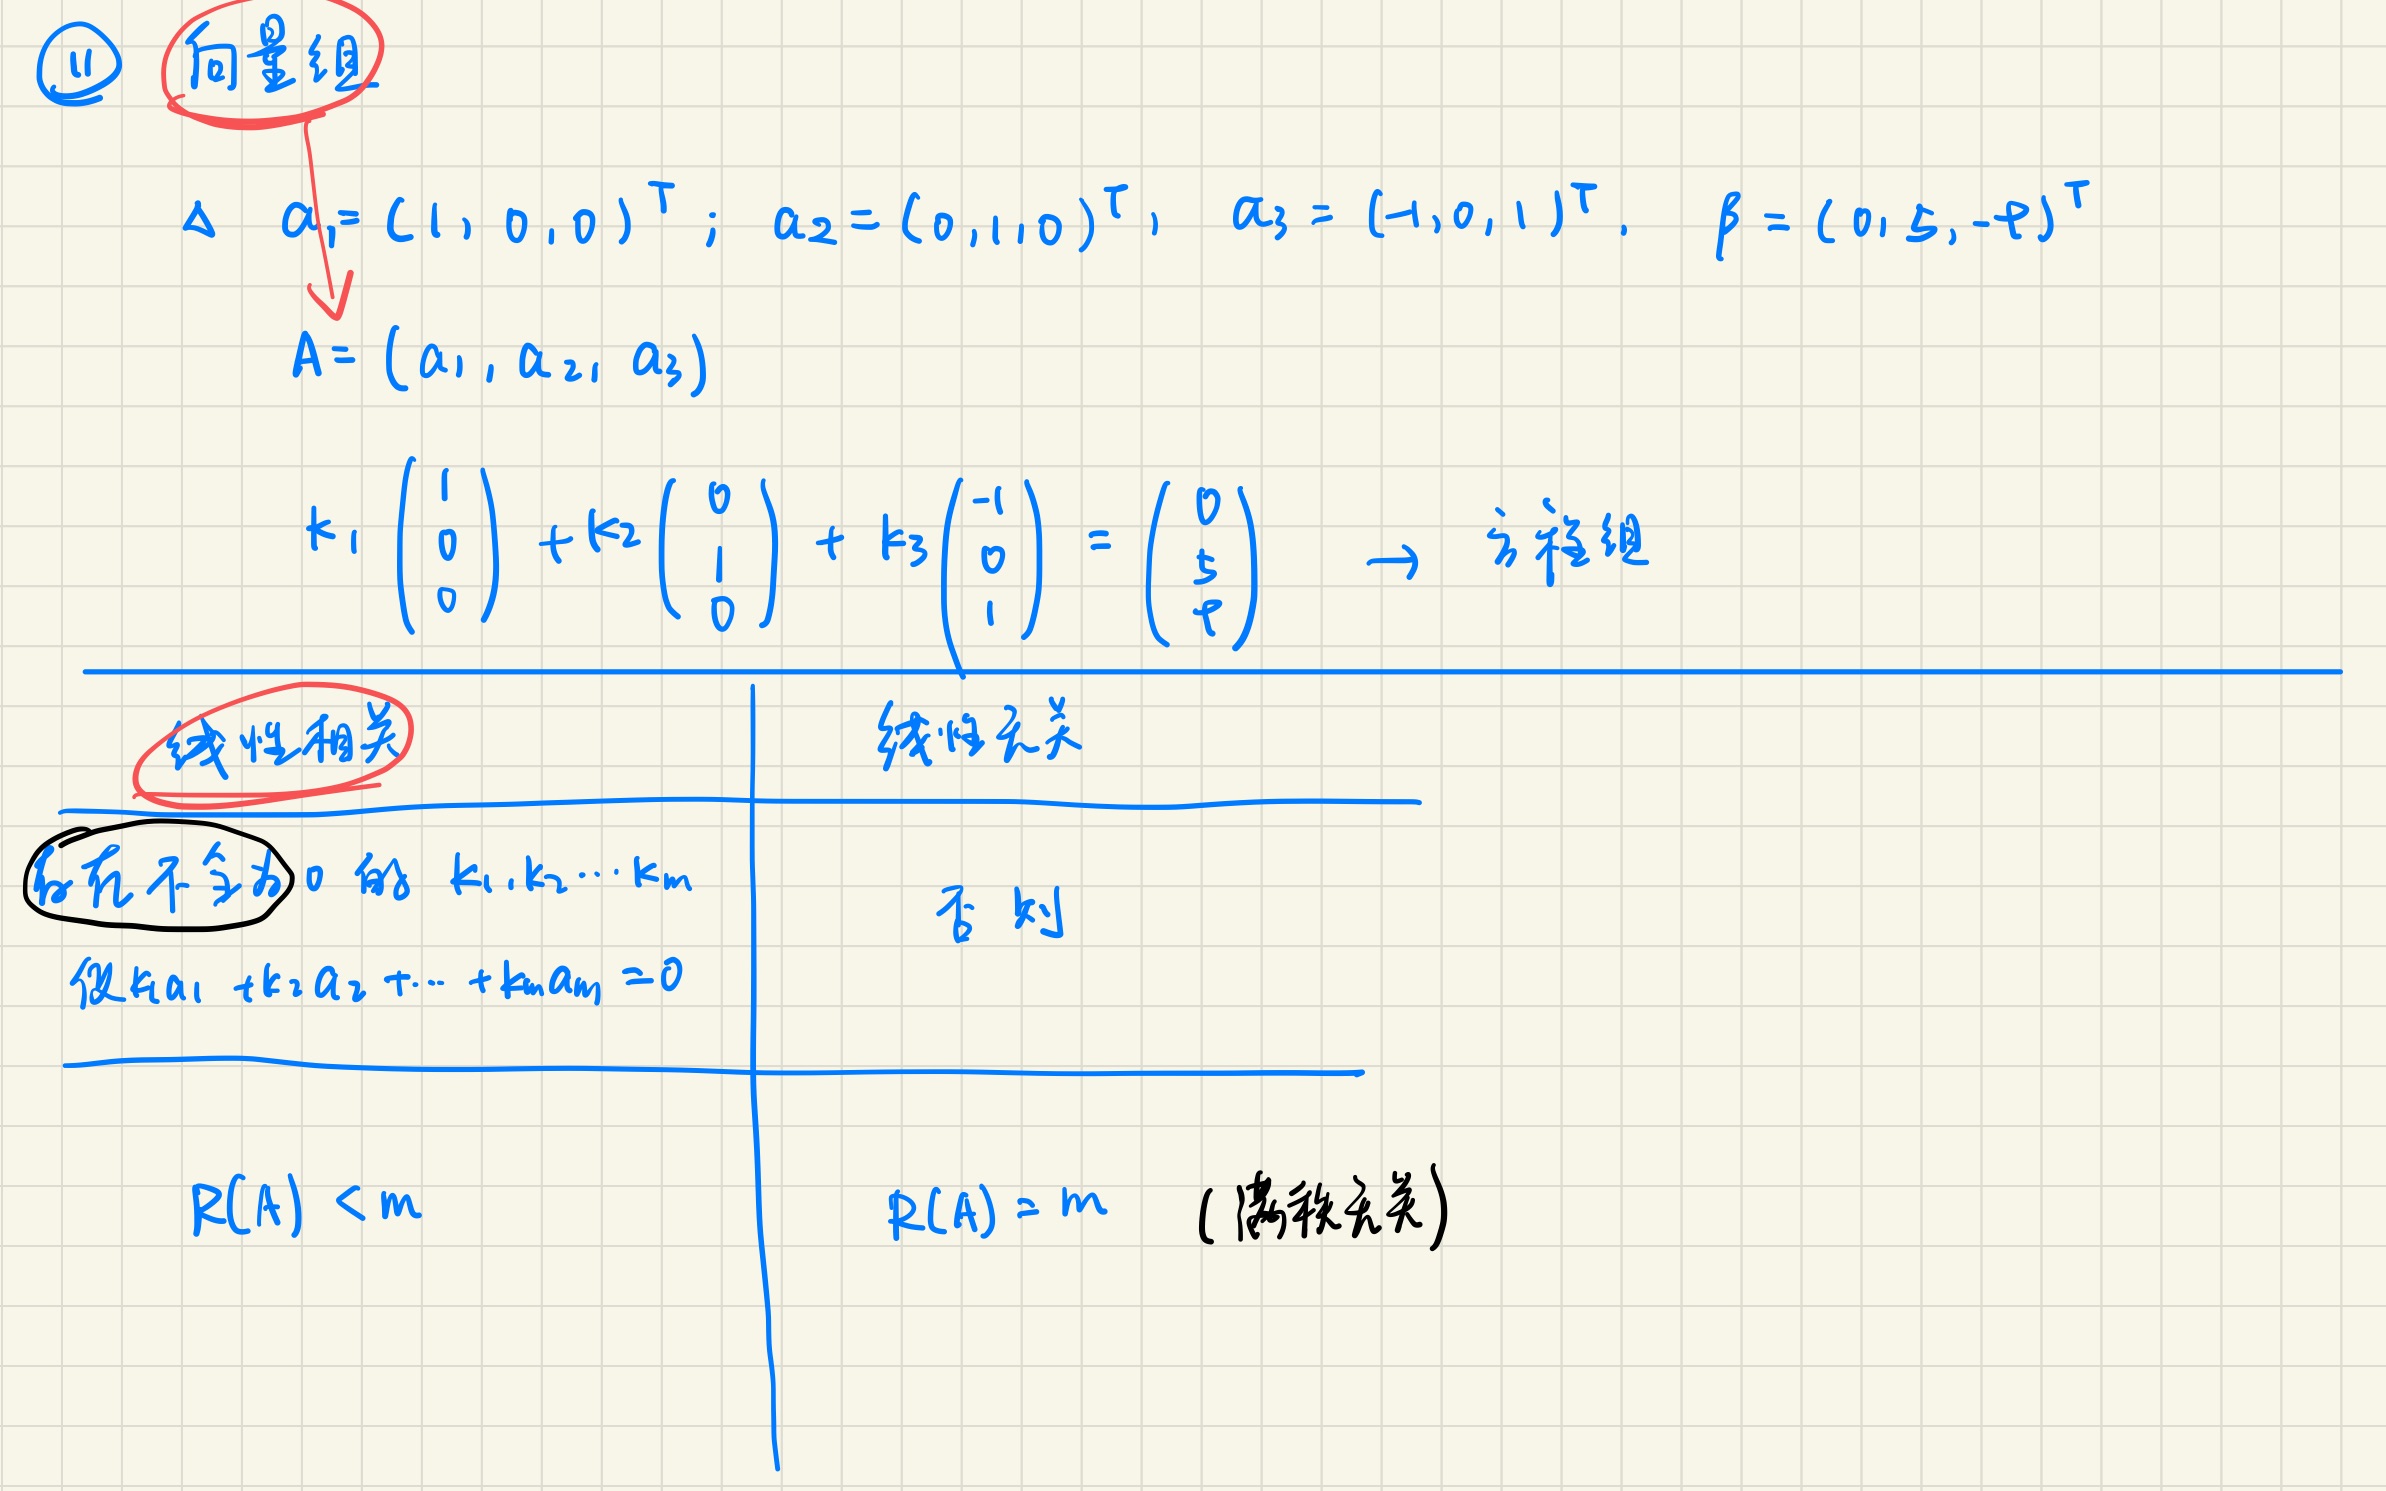 ⑪ 向量组
Δ a₁=(1,0,0)ᵀ; a₂=(0,1,0)ᵀ, a₃=(-1,0,1)ᵀ, β=(0,5,-9)ᵀ
A=(a₁,a₂,a₃)
k₁(1 0 0)+k₂(0 1 0)+k₃(-1 0 1)=(0 5 9) → 方程组
线性相关 线性无关
如有不全为0的 k₁,k₂…kₘ 否则
使k₁a₁+k₂a₂+…+kₘaₘ=0
R(A)<m R(A)=m (满秩无关)